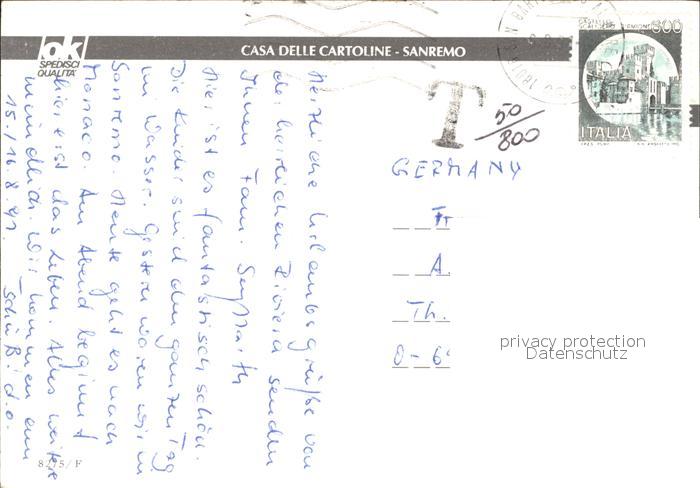 ok
SPEDISCI
QUALITA'
CASA DELLE CARTOLINE - SANREMO
600
ITALIA
T
50/800
GERMANY
A.
Th.
0-6
privacy protection
Datenschutz
Herzliche Urlaubsgrüße von
der herrlichen Riviera senden
Ihnen Fam.
Hier ist es fantastisch schön.
Die Kinder sind den ganzen Tag
im Wasser. Gestern waren wir in
Sanremo. Heute geht es nach
Monaco. Am Abend beginnt
hier erst das Leben. Alles weitere
mündlich. Wir kommen am
15./16.8.
8275/F